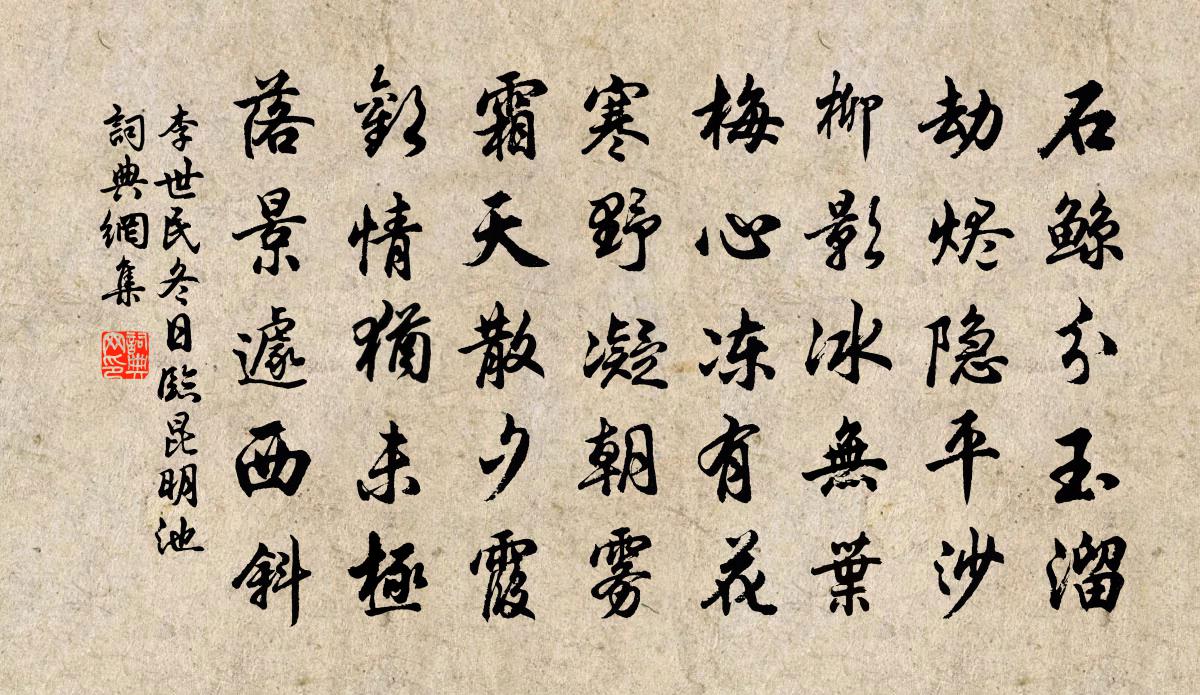 石鯨分玉溜
劫烬隐平沙
柳影冰無葉
梅心冻有花
寒野凝朝雾
霜天散夕霞
歡情猶未極
落景遽西斜
李世民冬日臨昆明池
詞典網集
詞典網印